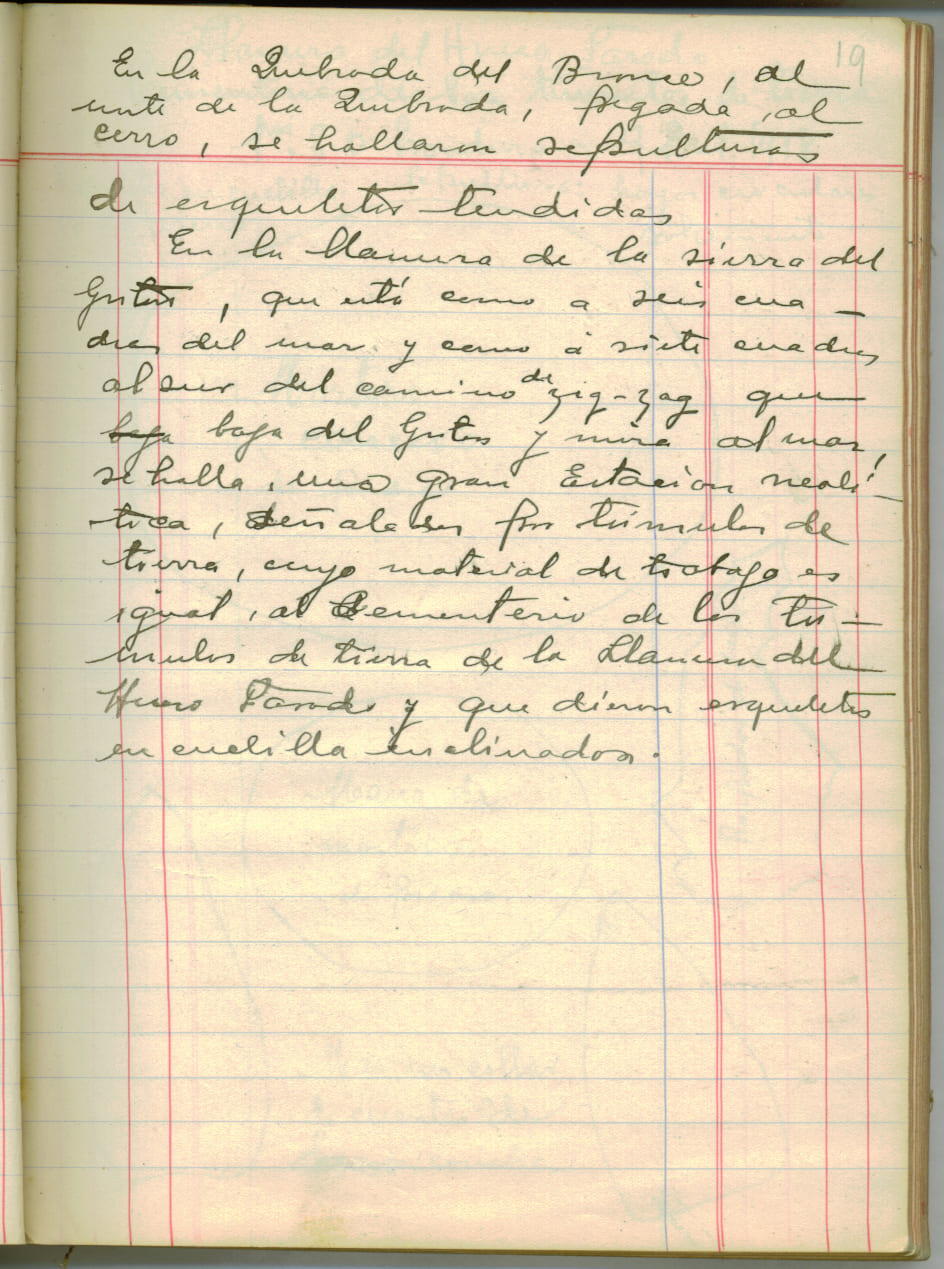 19
En la Quebrada del Bronce, al
norte de la Quebrada, pegada al
cerro, se hallaron sepulturas
de esqueletos tendidos
En la llamura de la sierra del
Gritos, que está como a seis cua-
dras del mar y como á siete cuadras
al sur del camino de zig-zag que
baja baja del Gritos y mira al mar,
se halla, una gran Estacion neolí-
tica, señalada por túmulos de
tierra, cuyo material de trabajo es
igual, al Cementerio de los Tú-
mulos de tierra de la Llamura del
Hueso Parado y que dieron esqueletos
en cuclilla inclinados.